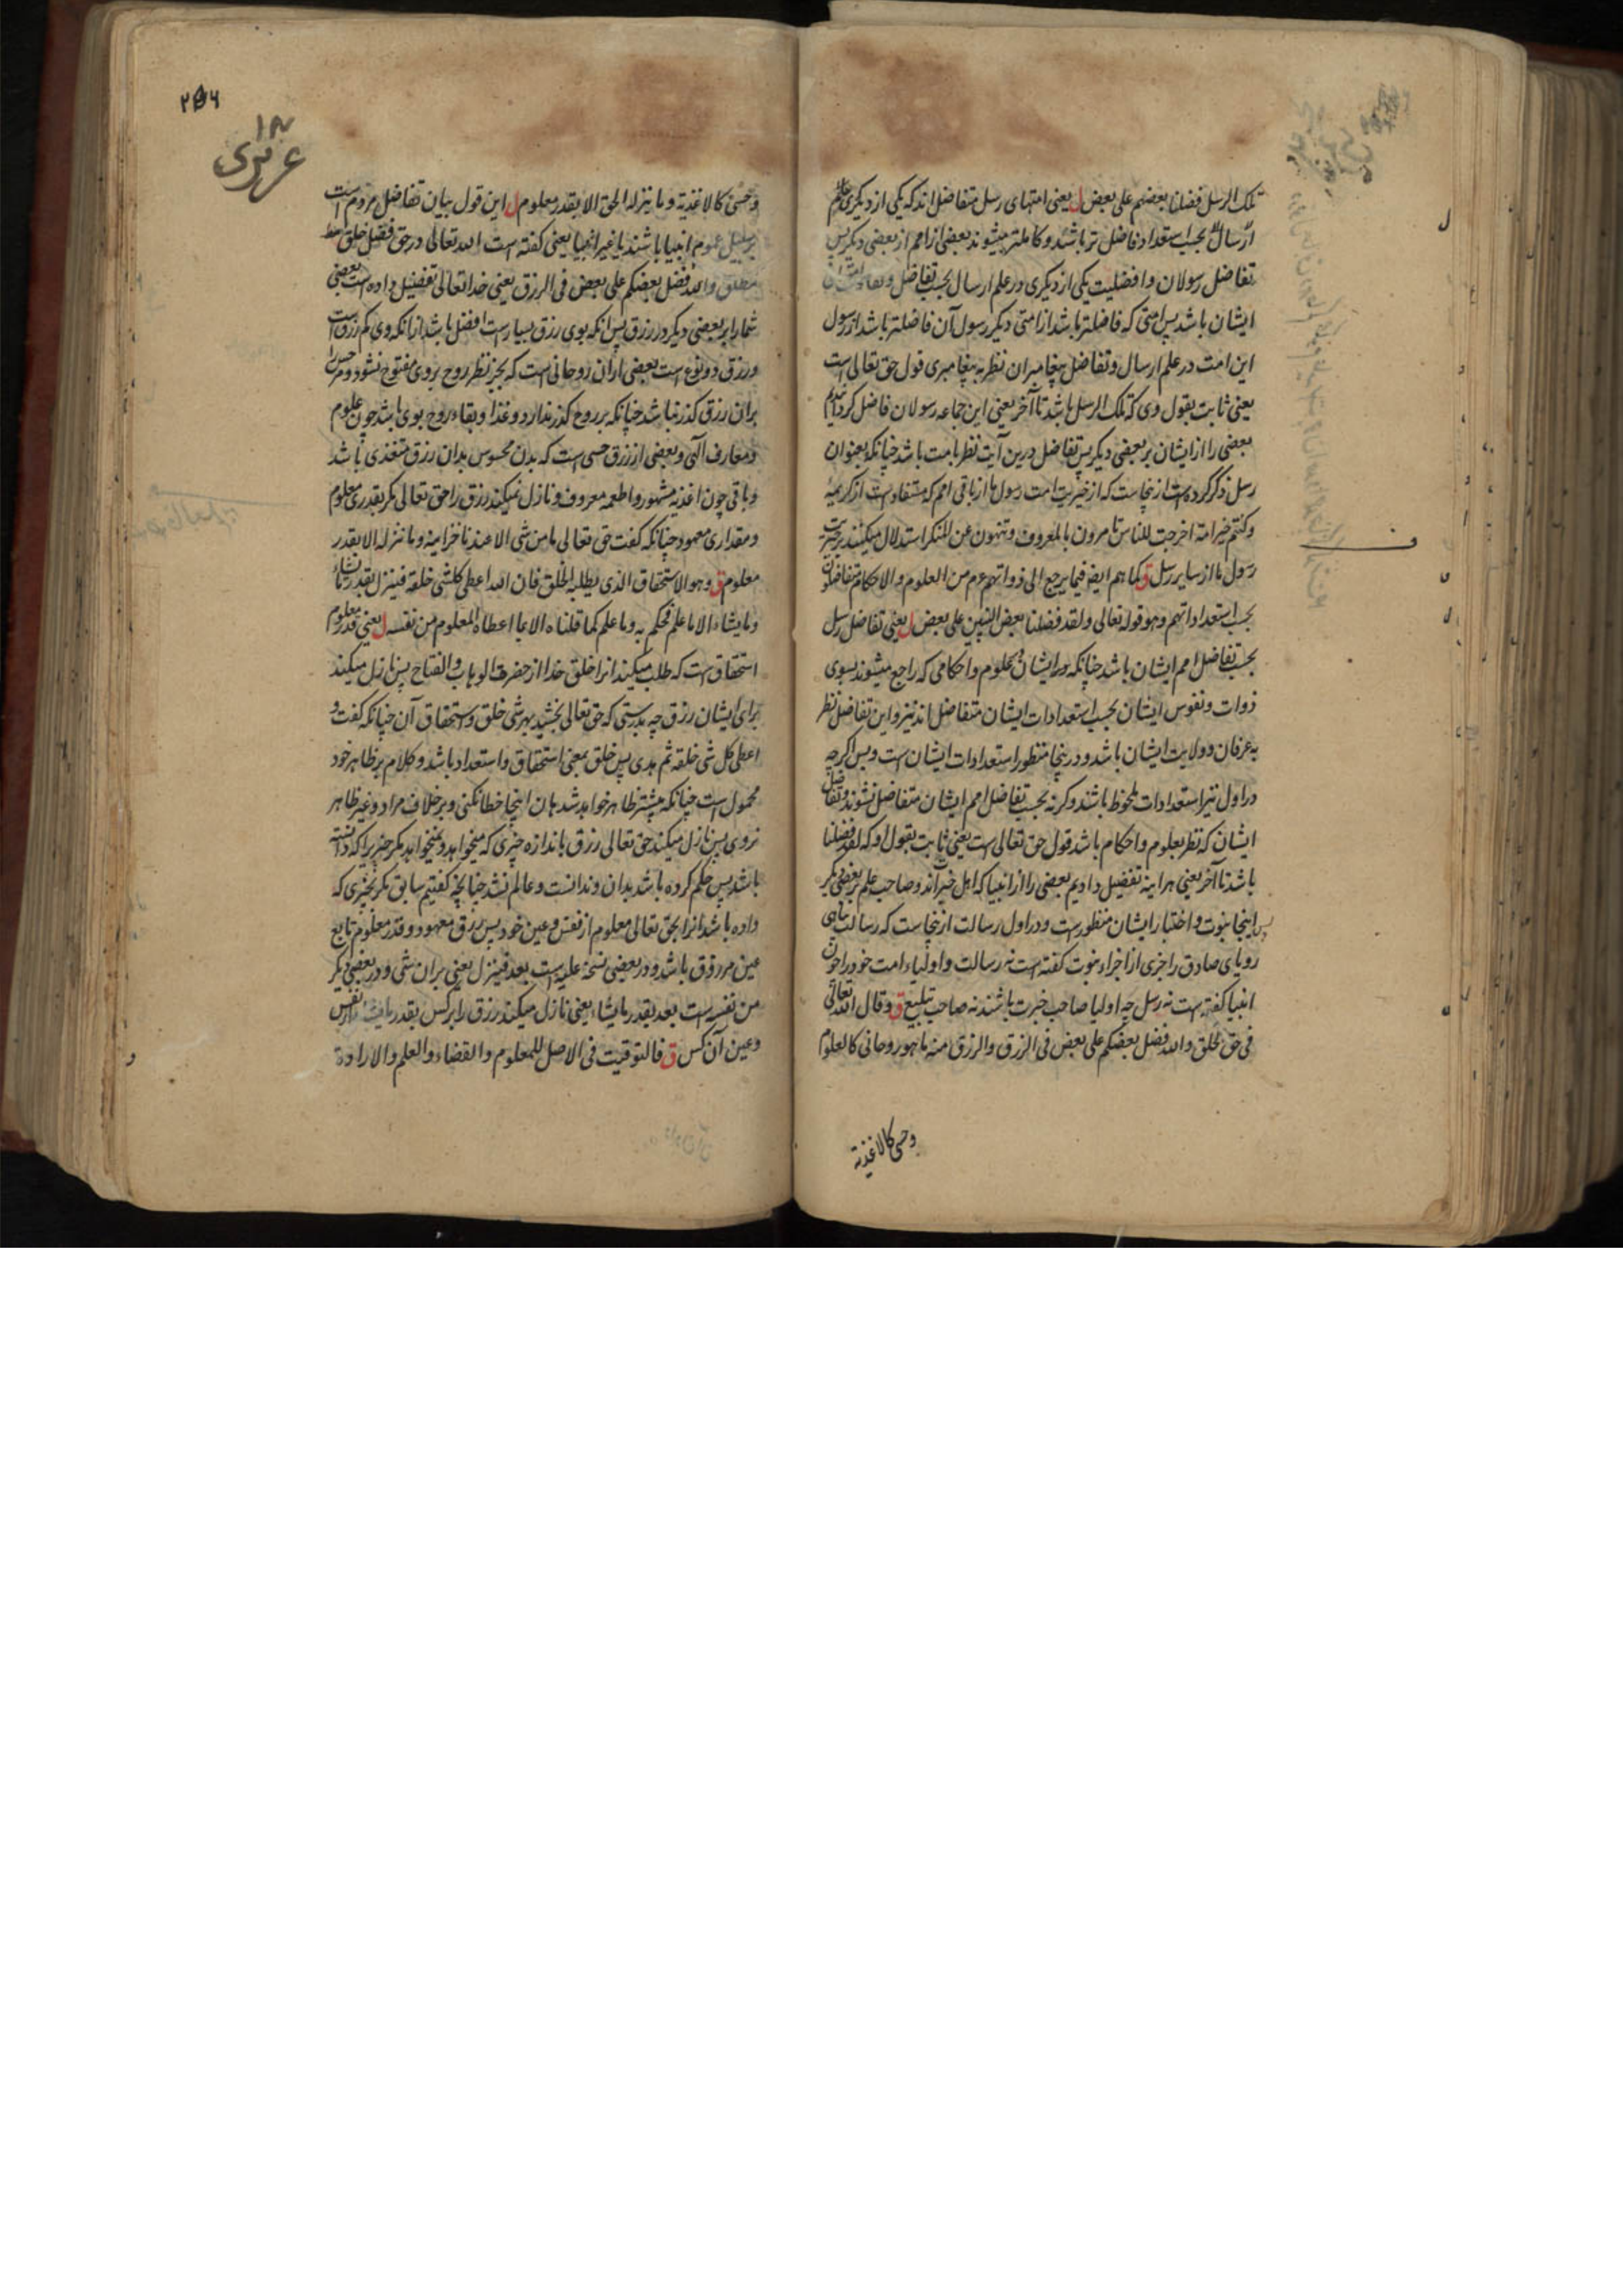 تلک الرسل فضلنا بعضهم علی بعض ل یعنی امتهای رسل متفاضل اند که یکی از دیگری در علم
ارسال بحسب استعداد فاضل تر باشد و کاملتر میشوند بعضی از امم از بعضی دیگر پس
تفاضل رسولان و افضلیت یکی از دیگری در علم ارسال بحسب تفاضل و تفاوت امتان
ایشان باشد پس امتی که فاضلتر باشد از امتی دیگر رسول آن فاضلتر باشد از رسول
این امت در علم ارسال و تفاضل پیغامبران نظر به پیغامبری قول حق تعالی است
یعنی ثابت بقول وی که تلک الرسل باشد تا آخر یعنی این جماعه رسولان فاضل کردانیدیم
بعضی را از ایشان بر بعضی دیگر پس تفاضل درین آیت نظر بامت باشد چنانکه بعنوان
رسل ذکر کرده است از ینجاست که از خیریت امت رسول ما از باقی امم که مستفاد است از کریمه
وکنتم خیر امة اخرجت للناس تأمرون بالمعروف وتنهون عن المنکر استدلال میکنند بر خیریت
رسول ما از سایر رسل ق کما هم ایضا فیما یرجع الی ذواتهم من العلوم والاحکام متفاضلون
بحسب استعداداتهم وهو قوله تعالی ولقد فضلنا بعض النبیین علی بعض ل یعنی تفاضل رسل
بحسب تفاضل امم ایشان باشد چنانکه در ایشان بعلوم و احکامی که راجع میشوند بسوی
ذوات و نفوس ایشان بحسب استعدادات ایشان متفاضل اند نیز و این تفاضل نظر
به عرفان و ولایت ایشان باشد و درینجا منظور استعدادات ایشان ست و بس اگرچه
در اول نیز استعدادات ملحوظ باشند وکرنه بحسب تفاضل امم ایشان متفاضل نشوند و تفاضل
ایشان که نظر بعلوم و احکام باشد قول حق تعالی ست یعنی ثابت بقول او که لقد فضلنا
باشد تا آخر یعنی هر اینه تفضیل دادیم بعضی را از انبیا که اهل خبر اند و صاحب علم بر بعضی دیگر
پس اینجا نبوت و اختبار ایشان منظور ست و در اول رسالت از ینجاست که رسالت پناهی
رویای صادق را جزی از اجزاء نبوت گفته است نه رسالت و اولیاء امت خود را اخوان
انبیا گفته ست نه رسل چه اولیا صاحب خبرت باشند نه صاحب تبلیغ ق وقال الله تعالی
فی حق الخلق والله فضل بعضکم علی بعض فی الرزق والرزق منه ما هو روحانی کالعلوم
وحسی کالاغذیة
۲۵۶
عزیزی
وحسی کالاغذیة وما ینزله الحق الا بقدر معلوم ل این قول بیان تفاضل مردم است
بر سبیل عموم انبیا باشند یا غیر انبیا یعنی گفته است الله تعالی در حق فضل خلق
مطلق والله فضل بعضکم علی بعض فی الرزق یعنی خدا تعالی تفضیل داده است بعضی
شما را بر بعضی دیگر در رزق پس انکه بوی رزق بسیار است افضل باشد از انکه وی کم رزق است
و رزق دو نوع است بعضی از ان روحانی است که بجز نظر روح بر وی مفتوح نشود و مر حس را
بران رزق گذر نباشد چنانکه بر روح گذر ندارد و غذا و بقاء روح بوی باشد چون علوم
ومعارف الهی و بعضی از رزق حسی است که بدن محسوس بدان رزق متغذی باشد
و باقی چون اغذیه مشهور و اطعمه معروف و نازل نمیکند رزق را حق تعالی مگر بقدری معلوم
و مقداری معهود چنانکه گفت حق تعالی ما من شی الا عندنا خزاینه وما ننزله الا بقدر
معلوم ق وهو الاستحقاق الذی یطلبه الخلق فان الله اعطی کل شی خلقه فینزل بقدر ما یشاء
وما یشاء الا ما علم فحکم به وما علم کما قلناه الا بما اعطاه المعلوم من نفسه ل یعنی قدر معلوم
استحقاق ست که طلب میکند انرا خلق خدا از حضرت الوهاب والفتاح پس نازل میکند
برای ایشان رزق چه بدرستی که حق تعالی بخشید بهر شی خلق و استحقاق آن چنانکه گفت و
اعطی کل شی خلقه ثم هدی پس خلق بمعنی استحقاق و استعداد باشد و کلام بر ظاهر خود
محمول است چنانکه پیشتر ظاهر خواهد شد هان اینجا خطا نکنی و بر خلاف مراد و غیر ظاهر
نروی پس نازل میکند حق تعالی رزق باندازه چیزی که میخواهد و نمیخواهد مگر چیزی را که دانسته
باشد پس حکم کرده باشد بدان وندانست وعالم نشد چنانچه گفتیم سابق مگر بچیزی که
داده باشد انرا بحق تعالی معلوم از نفس و عین خود پس رزق معهود و قدر معلوم تابع
عین مرزوق باشد و در بعضی نسخه علیه است بعد فینزل یعنی بران شی و در بعضی دیگر
من نفسه است بعد بقدر ما یشاء یعنی نازل میکند رزق را بر کس بقدر ما یشاء از نفس
وعین آن کس ق فالتوقیت فی الاصل للمعلوم والقضاء والعلم والارادة